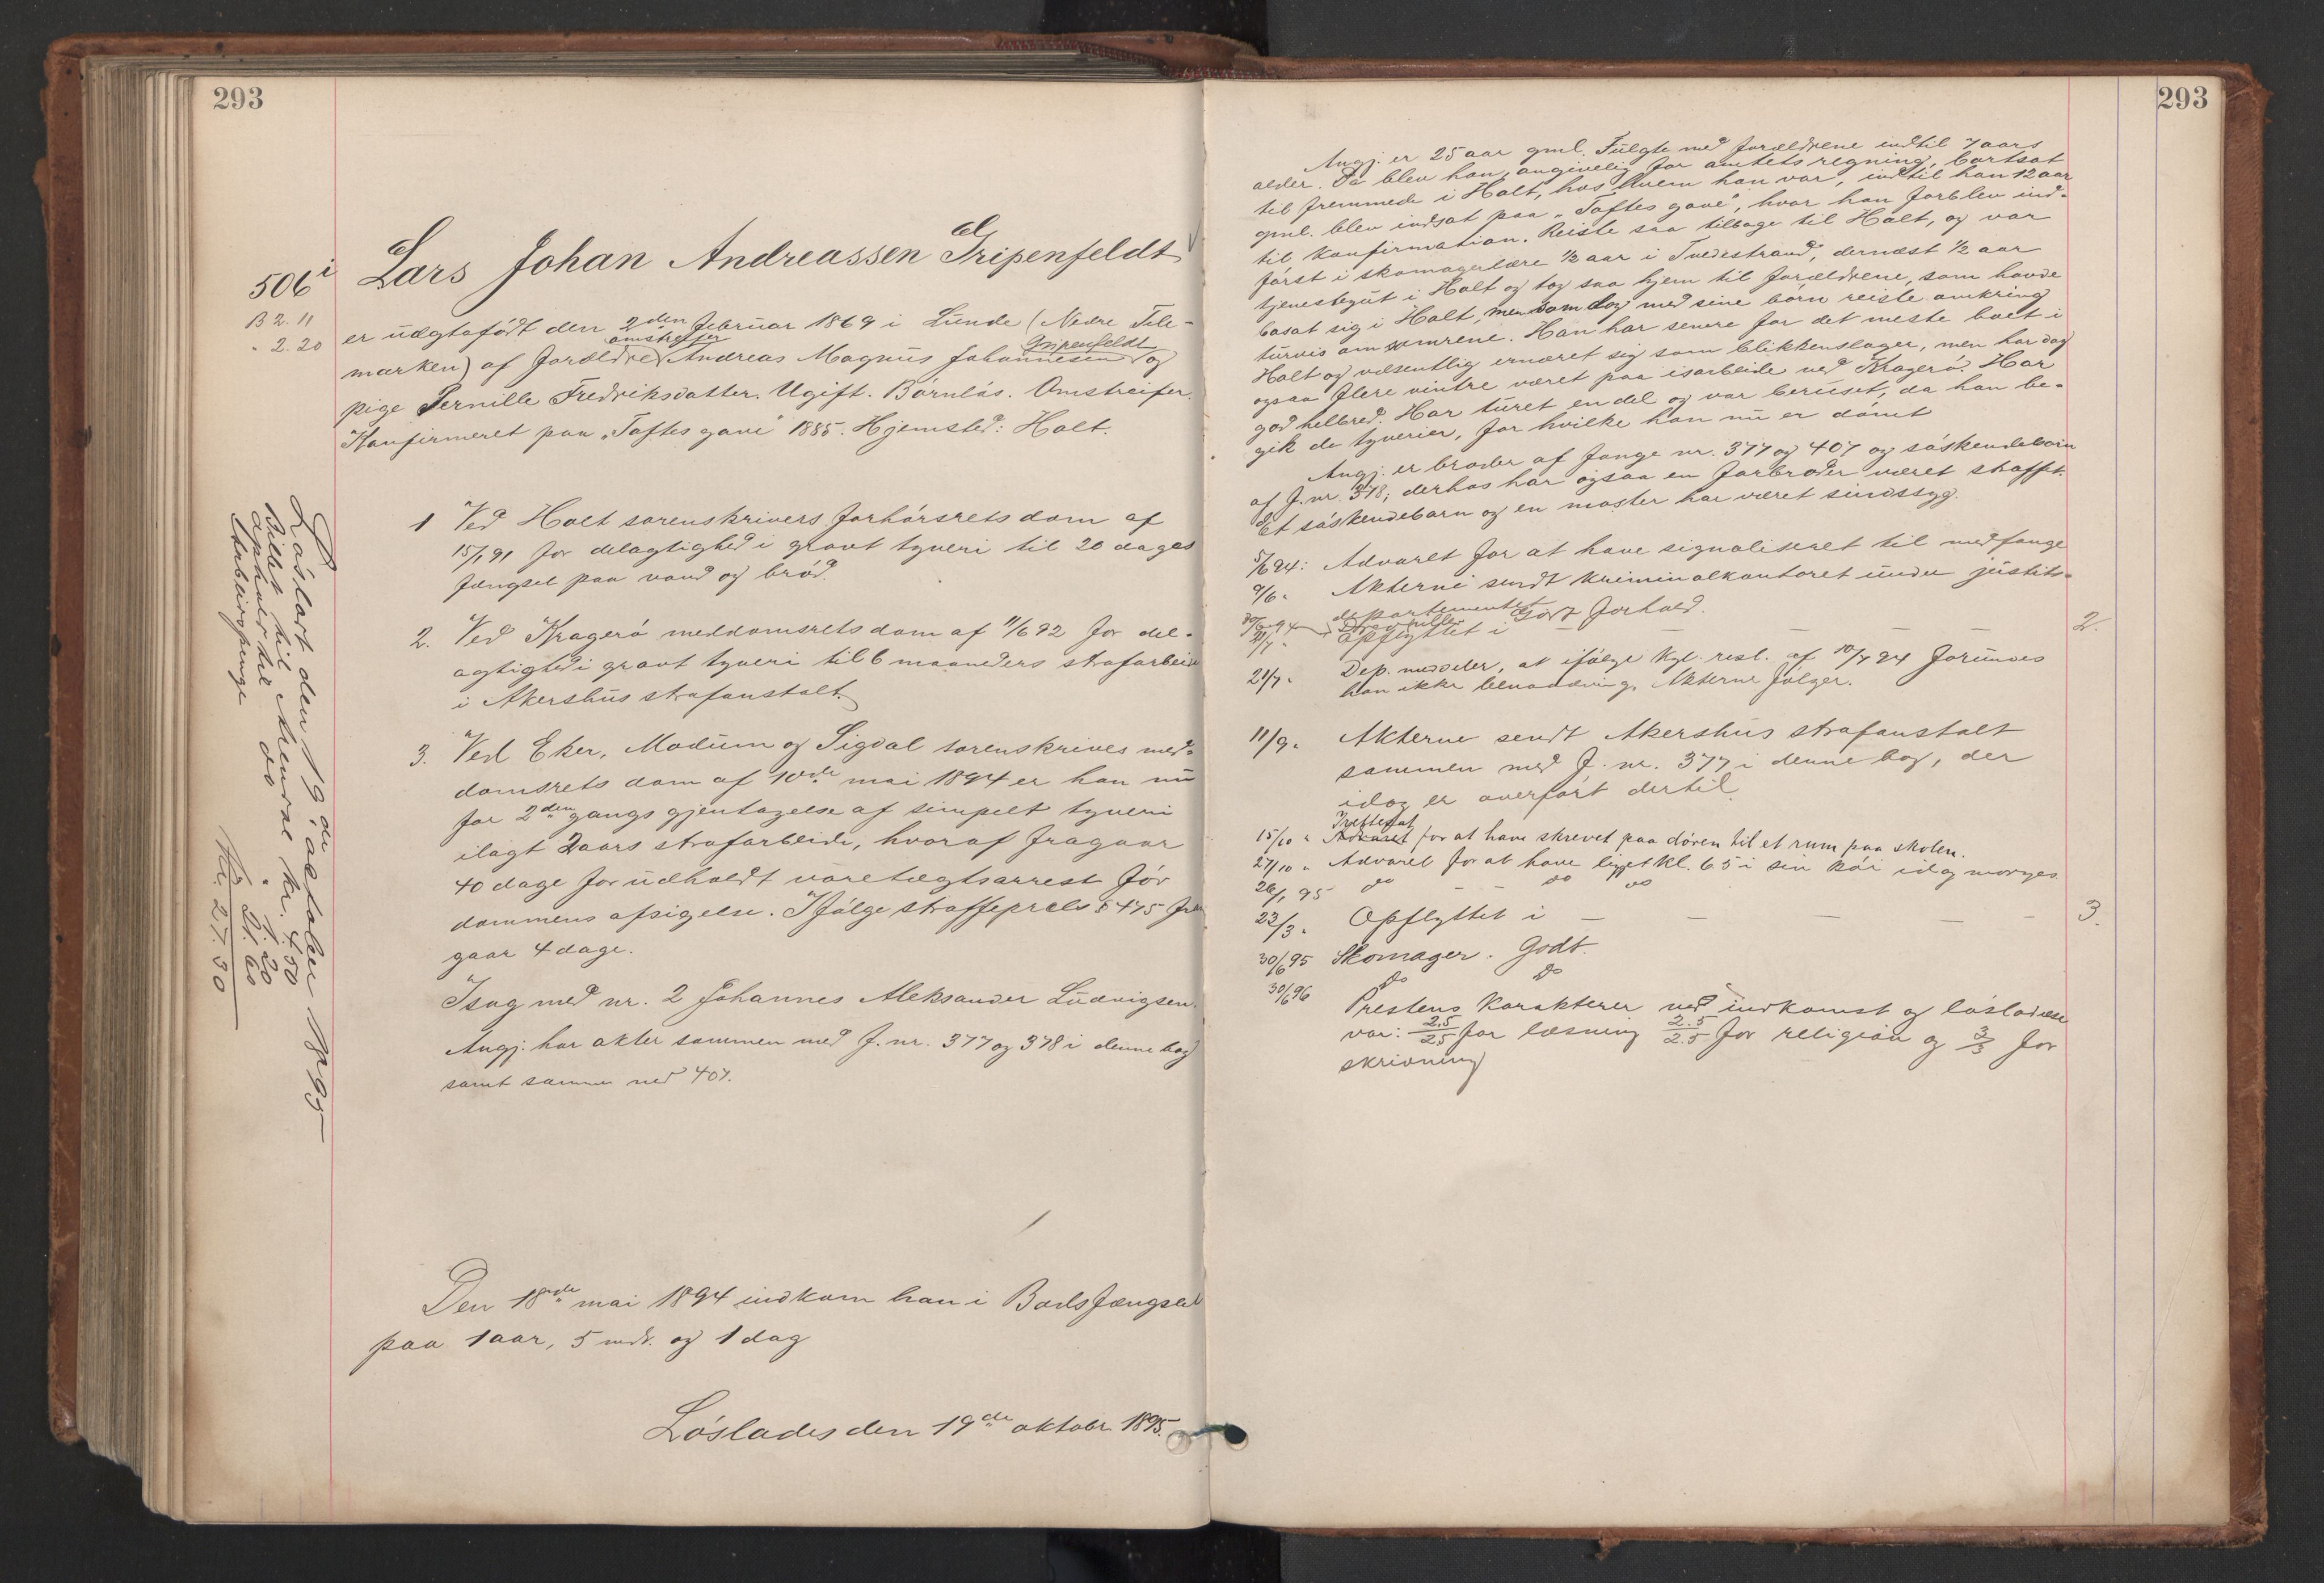 293
506 i
B 2. 11
" 2. 20
Lars Johan Andreassen Gripenfeldt
er uægtefødt den 2den februar 1869 i Lunde (Nedre Tele-
omstreffer Gripenfeldt
marken) af forældre Andreas Magnus Johannesen og
pige Pernille Fredriksdatter. Ugift. Børnløs. Omstreifer.
Konfirmeret paa "Toftes gave" 1885. Hjemsted: Holt.
1 Ved Holt sorenskrivers forhørsrets dom af
15/1 91 for delagtighed i grovt tyveri til 20 dages
fængsel paa vand og brød.
2. Ved Kragerø meddomsrets dom af 11/6 92 for del-
agtighed i grovt tyveri til 6 maaneders strafarbeide
i Akershus strafanstalt.
3. Ved Eker, Modum og Sigdal sorenskrivers med-
domsrets dom af 10de mai 1894 er han nu
for 2den gangs gjentagelse af simpelt tyveri
ilagt 2 aars strafarbeide, hvoraf fragaar
40 dage for udholdt varetægtsarrest før
dommens afsigelse. Ifølge straffeprcls § 475 fra
gaar 4 dage.
Isag med nr. 2 Johannes Aleksander Ludvigsen.
Angj. har akter sammen med f. nr. 377 og 378 i denne bog
samt samme med 407.
Den 18de mai 1894 indkom han i Bodsfængslet
paa 1 aar, 5 mdr. og 1 dag
Løslades den 19de oktober 1895.
Løsladt den 19de oktober 1895
Billet til Arendal kr. 4.50
ophold til do " 1.20
Arbeidspenge " 21.60
Kr. 27.30
293
Angj. er 25 aar gml. Fulgte med forældrene indtil 7 aars
alder. Da blev han, angivelig for amtets regning, bortsat
til fremmede i Holt, hos hvem han var, indtil han 12 aar
gml. blev indsat paa "Toftes gave", hvor han forblev ind-
til konfirmation. Reiste saa tilbage til Holt, og var
først i skomagerlære 1/2 aar i Tvedestrand, dernæst 1/2 aar
tjenestegut i Holt og tog saa hjem til forældrene, som havde
bosat sig i Holt, men som dog med sine børn reiste omkring
turvis om somrene. Han har senere for det meste boet i
Holt og væsentlig ernæret sig som blikkenslager, men har dog
ogsaa flere vintre været paa isarbeide ved Kragerø. Har
god helbred. Har turet en del og var beruset, da han be-
gik de tyverier, for hvilke han nu er dømt
Angj. er broder af fange nr. 377 og 407 og søskendebarn
af f. nr. 378; derhos har ogsaa en farbroder været straffet.
Et søskendebarn og en moster har været sindssyg.
5/6 94: Advaret for at have signaliseret til medfange
9/6 " Akterne sendt kriminalkontoret under justits-
departementet
30/6 94 Godt forhold.
21/7 " Opflyttet i — — — — 2.
21/7 " Dep. meddeler, at ifølge kgl. resl. af 10/7 94 forundes
han ikke benaadning. Akterne følger.
11/9 " Akterne sendt Akershus strafanstalt
sammen med f. nr. 377 i denne bog, der
idag er overført dertil.
Irettesat
15/10 " Advaret for at have skrevet paa døren til et rum paa skolen.
27/10 " Advaret for at have ligget kl. 6 5 i sin køi idag morges
26/1 95 do — — do do
23/3 " Opflyttet i — — — — 3.
30/6 95 Skomager. Godt.
30/6 96 do do
Prestens karakterer ved indkomst og løsladelse
var: 2.5/2.5 for læsning 2.5/2.5 for religion og 3/3 for
skrivning